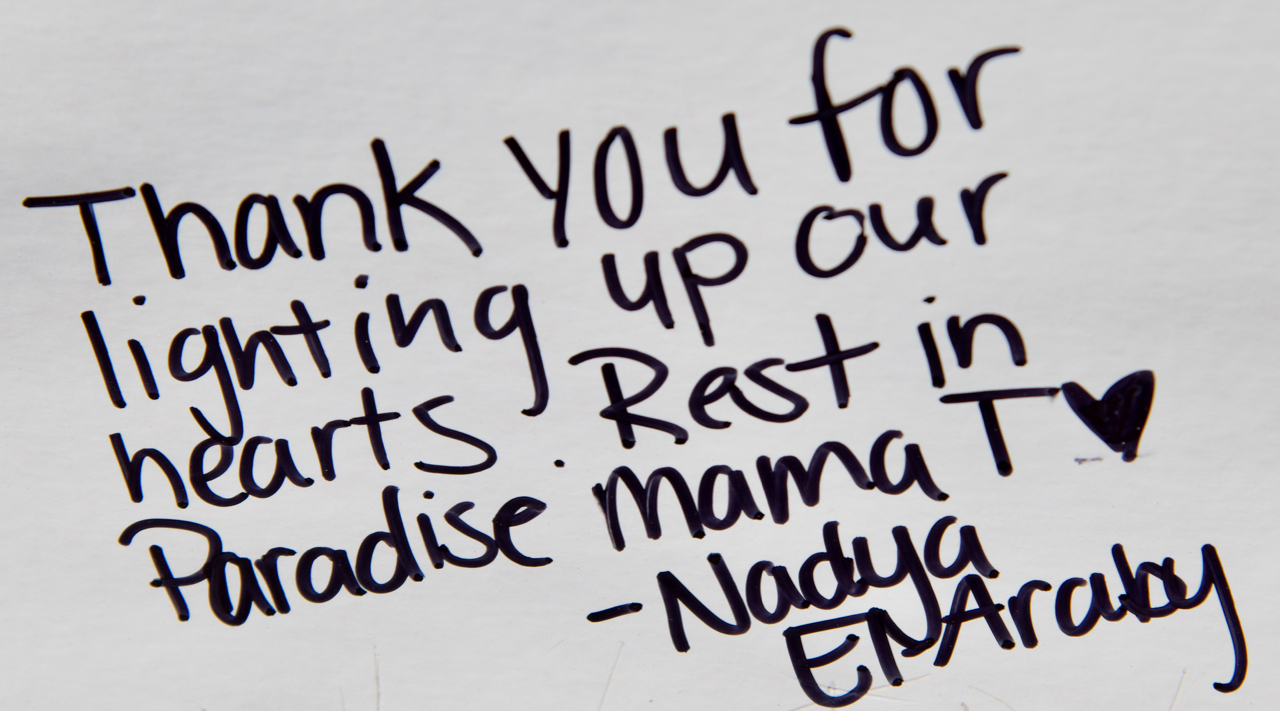 Thank you for
lighting up our
hearts. Rest in
Paradise mama T ♥
- Nadya
ENAraby